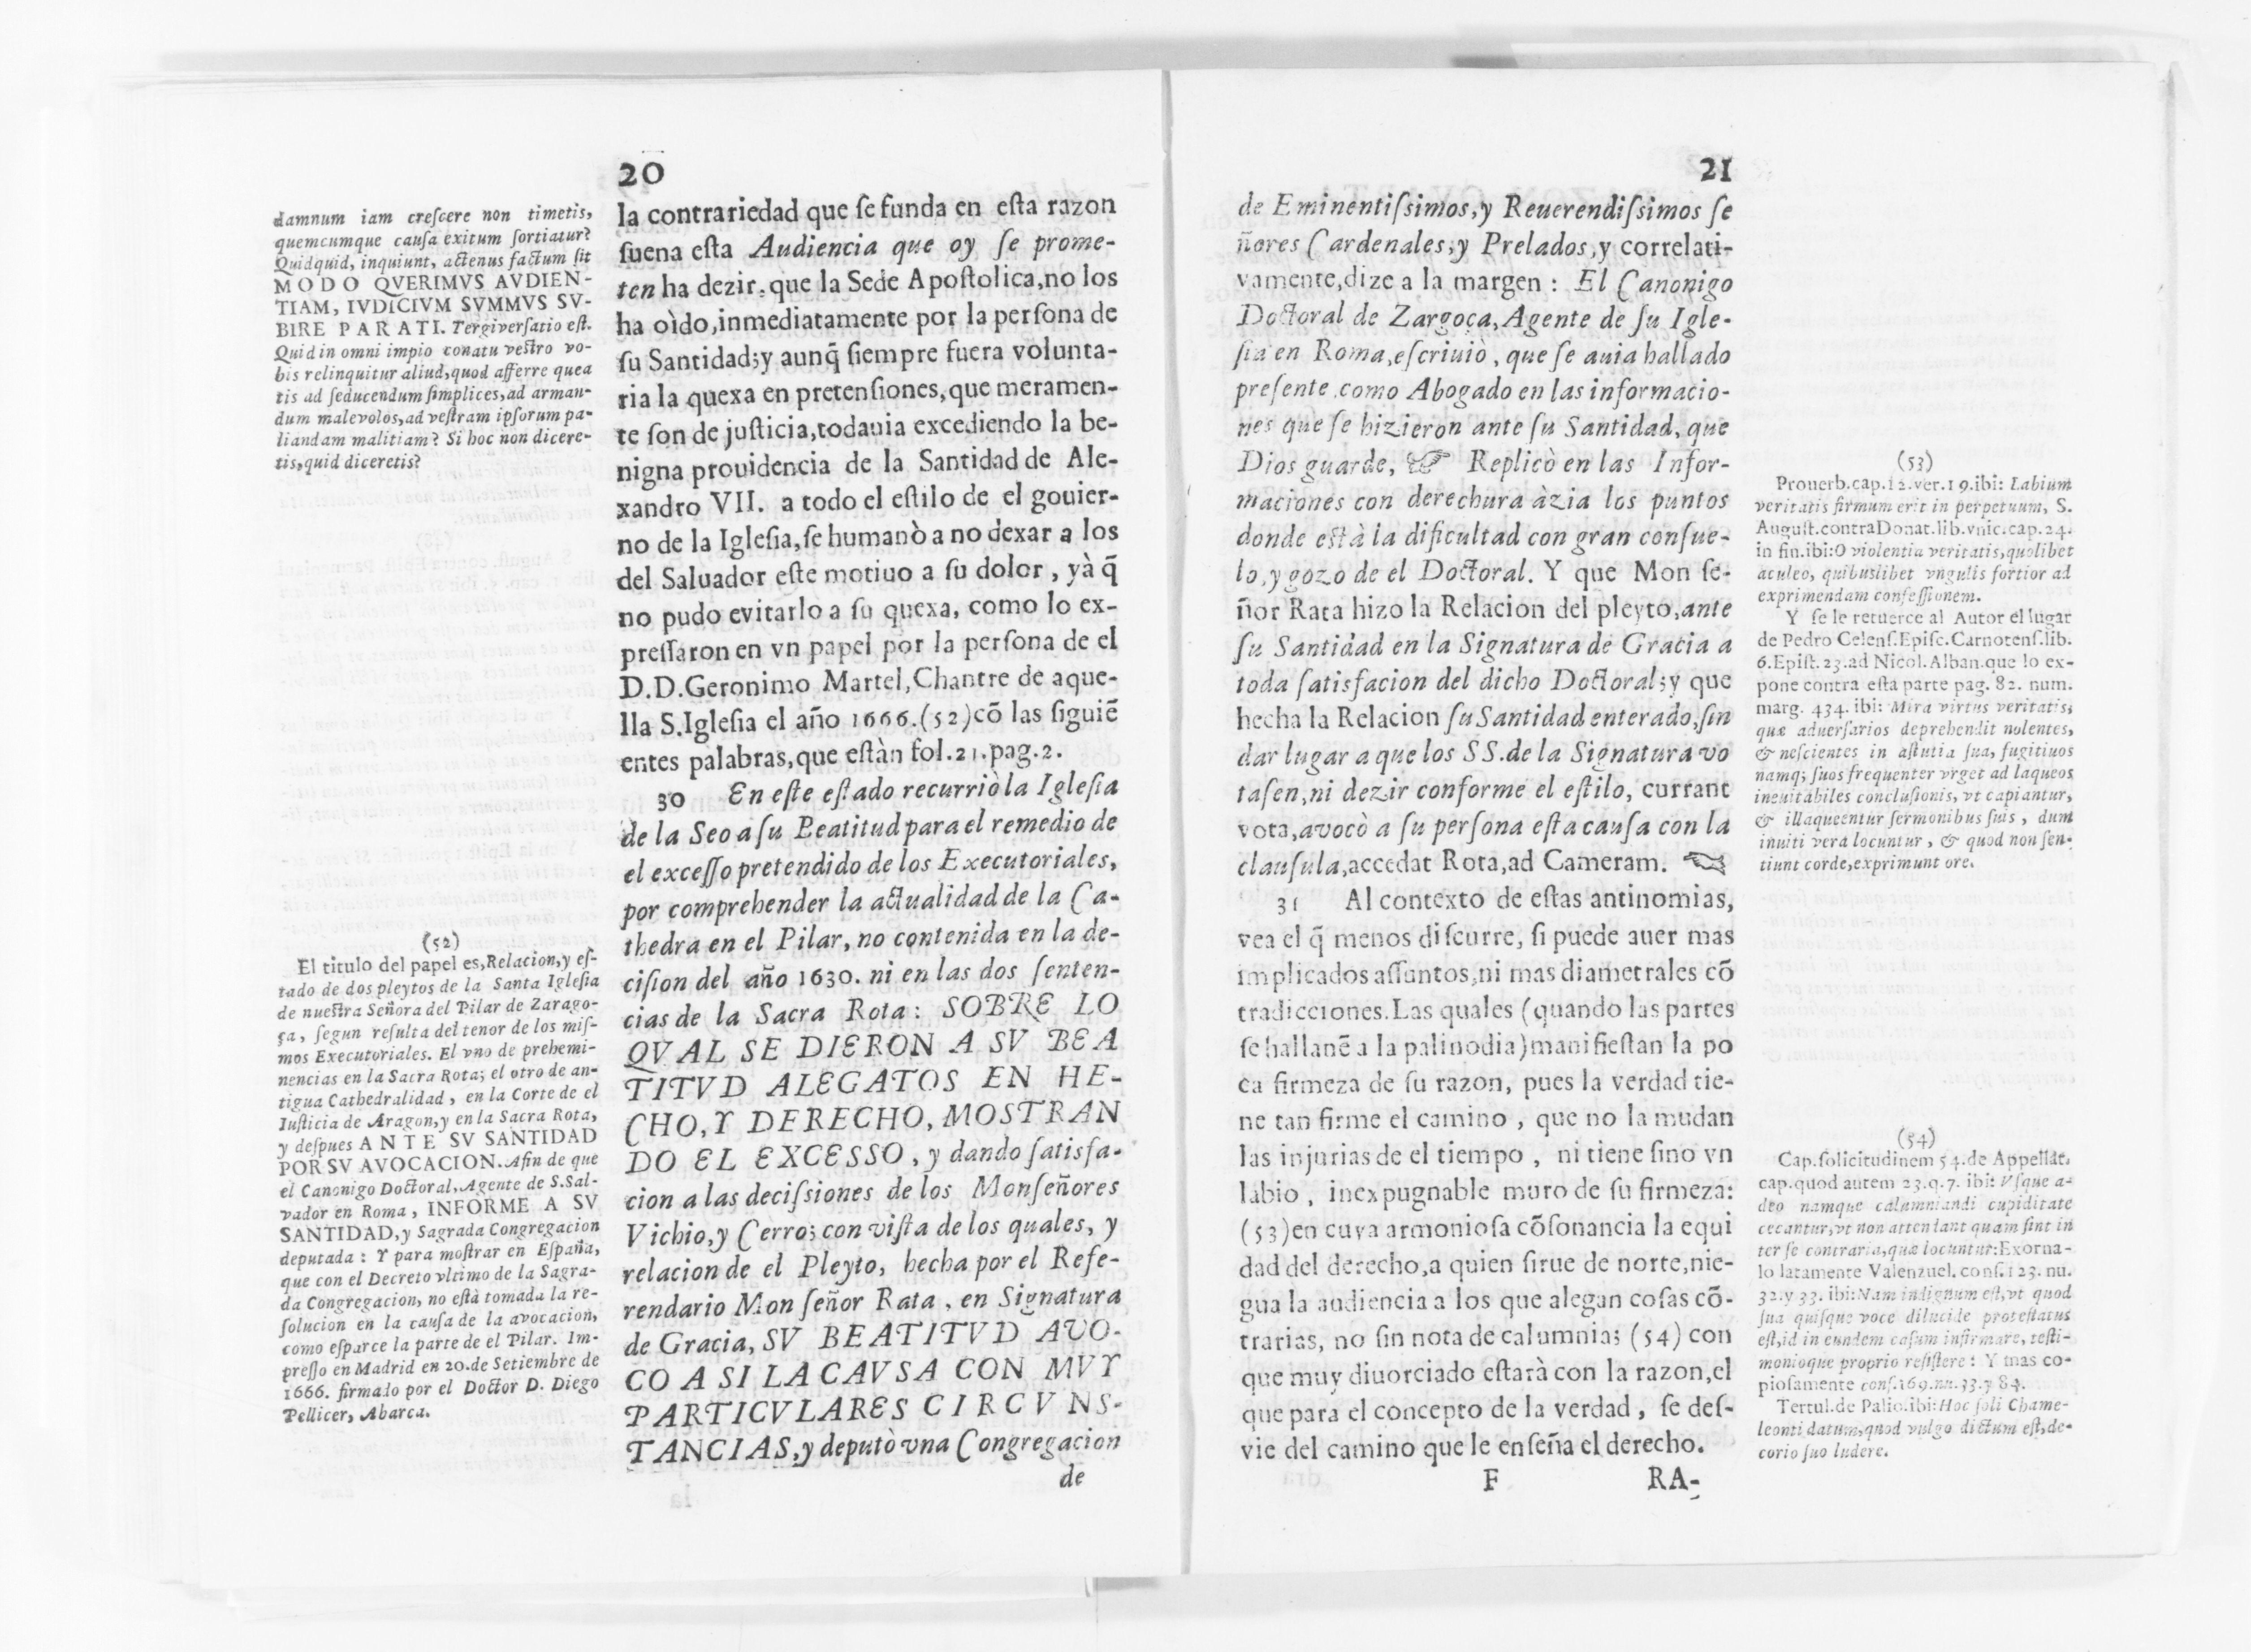 20
damnum iam creſcere non timetis,
quemcumque cauſa exitum ſortiatur?
Quidquid, inquiunt, actenus factum ſit
MODO QVERIMVS AVDIEN-
TIAM, IVDICIVM SVMMVS SV-
BIRE PARATI. Tergiverſatio eſt.
Quid in omni impio conatu veſtro vo-
bis relinquitur aliud, quod afferre quea
tis ad ſeducendum ſimplices, ad arman-
dum malevolos, ad veſtram ipſorum pa-
liandam malitiam? Si hoc non dicere-
tis, quid diceretis?
(52)
El titulo del papel es, Relacion, y eſ-
tado de dos pleytos de la Santa Igleſia
de nueſtra Señora del Pilar de Zarago-
ça, ſegun reſulta del tenor de los miſ-
mos Executoriales. El vno de prehemi-
nencias en la Sacra Rota; el otro de an-
tigua Cathedralidad, en la Corte de el
Iuſticia de Aragon, y en la Sacra Rota,
y deſpues ANTE SV SANTIDAD
POR SV AVOCACION. Afin de que
el Canonigo Doctoral, Agente de S. Sal-
vador en Roma, INFORME A SV
SANTIDAD, y Sagrada Congregacion
deputada: Y para moſtrar en Eſpaña,
que con el Decreto vltimo de la Sagra-
da Congregacion, no eſtà tomada la re-
ſolucion en la cauſa de la avocacion,
como eſparce la parte de el Pilar. Im-
preſſo en Madrid en 20. de Setiembre de
1666. firmado por el Doctor D. Diego
Pellicer, Abarca.
la contrariedad que ſe funda en eſta razon
ſuena eſta Audiencia que oy ſe prome-
ten ha dezir, que la Sede Apoſtolica, no los
ha oìdo, inmediatamente por la perſona de
ſu Santidad; y aunq̃ ſiempre fuera volunta-
ria la quexa en pretenſiones, que meramen-
te ſon de juſticia, todauia excediendo la be-
nigna prouidencia de la Santidad de Ale-
xandro VII. a todo el eſtilo de el gouier-
no de la Igleſia, ſe humanò a no dexar a los
del Saluador eſte motiuo a ſu dolor, yà q̃
no pudo evitarlo a ſu quexa, como lo ex-
preſſaron en vn papel por la perſona de el
D.D. Geronimo Martel, Chantre de aque-
lla S. Igleſia el año 1666. (52) cõ las ſiguiẽ
entes palabras, que eſtàn fol. 21. pag. 2.
30 En eſte eſtado recurriò la Igleſia
de la Seo a ſu Beatitud para el remedio de
el exceſſo pretendido de los Executoriales,
por comprehender la actualidad de la Ca-
thedra en el Pilar, no contenida en la de-
ciſion del año 1630. ni en las dos ſenten-
cias de la Sacra Rota: SOBRE LO
QVAL SE DIERON A SV BEA
TITVD ALEGATOS EN HE-
CHO, Y DERECHO, MOSTRAN
DO EL EXCESSO, y dando ſatisfa-
cion a las deciſsiones de los Monſeñores
Vichio, y Cerro; con viſta de los quales, y
relacion de el Pleyto, hecha por el Refe-
rendario Monſeñor Rata, en Signatura
de Gracia, SV BEATITVD AVO-
CO A SI LA CAVSA CON MVY
PARTICVLARES CIRCVNS-
TANCIAS, y deputò vna Congregacion
de
21
de Eminentiſsimos, y Reuerendiſsimos ſe
ñores Cardenales, y Prelados, y correlati-
vamente, dize a la margen: El Canonigo
Doctoral de Zargoça, Agente de ſu Igle-
ſia en Roma, eſcriuiò, que ſe auia hallado
preſente como Abogado en las informacio-
nes que ſe hizieron ante ſu Santidad, que
Dios guarde, ☞ Replicò en las Infor-
maciones con derechura àzia los puntos
donde eſtà la dificultad con gran conſue-
lo, y gozo de el Doctoral. Y que Mon ſe-
ñor Rata hizo la Relacion del pleyto, ante
ſu Santidad en la Signatura de Gracia a
toda ſatisfacion del dicho Doctoral; y que
hecha la Relacion ſu Santidad enterado, ſin
dar lugar a que los SS. de la Signatura vo
taſen, ni dezir conforme el eſtilo, currant
vota, avocò a ſu perſona eſta cauſa con la
clauſula, accedat Rota, ad Cameram. ☜
31 Al contexto de eſtas antinomias,
vea el q̃ menos diſcurre, ſi puede auer mas
implicados aſſuntos, ni mas diametrales cõ
tradicciones. Las quales (quando las partes
ſe hallanẽ a la palinodia) manifieſtan la po
ca firmeza de ſu razon, pues la verdad tie-
ne tan firme el camino, que no la mudan
las injurias de el tiempo, ni tiene ſino vn
labio, inexpugnable muro de ſu firmeza:
(53) en cuya armonioſa cõſonancia la equi
dad del derecho, a quien ſirue de norte, nie-
gua la audiencia a los que alegan coſas cõ-
trarias, no ſin nota de calumnia; (54) con
que muy diuorciado eſtarà con la razon, el
que para el concepto de la verdad, ſe deſ-
vie del camino que le enſeña el derecho.
F RA-
(53)
Prouerb. cap. 12. ver. 19. ibi: Labium
veritatis firmum erit in perpetuum, S.
Auguſt. contra Donat. lib. vnic. cap. 24.
in fin. ibi: O violentia veritatis, quolibet
aculeo, quibuslibet vngulis fortior ad
exprimendam confeſſionem.
Y ſe le retuerce al Autor el lugar
de Pedro Celenſ. Epiſc. Carnotenſ. lib.
6. Epiſt. 23. ad Nicol. Alban. que lo ex-
pone contra eſta parte pag. 82. num.
marg. 434. ibi: Mira virtus veritatis,
quæ aduerſarios deprehendit nolentes,
& neſcientes in aſtutia ſua, fugitiuos
namq; ſuos frequenter vrget ad laqueos
ineuitabiles concluſionis, vt capiantur,
& illaqueentur ſermonibus ſuis, dum
inuiti vera locuntur, & quod non ſen-
tiunt corde, exprimunt ore.
(54)
Cap. ſolicitudinem 54. de Appellat.
cap. quod autem 23. q. 7. ibi: Vſque a-
deo namque calumniandi cupiditate
cecantur, vt non attendant quam ſint in
ter ſe contraria, quæ locuntur: Exorna-
lo latamente Valenzuel. conſ. 123. nu.
32. y 33. ibi: Nam indignum eſt, vt quod
ſua quiſque voce dilucide proteſtatus
eſt, id in eundem caſum infirmare, teſti-
monioque proprio reſiſtere: Y mas co-
pioſamente conſ. 169. nu. 33. y 84.
Tertul. de Palio. ibi: Hoc ſoli Chame-
leonti datum, quod vulgo dictum eſt, de-
corio ſuo ludere.